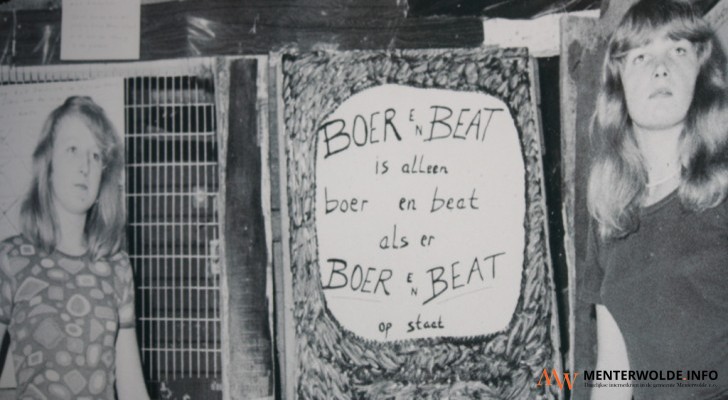 BOER EN BEAT
is alleen
boer en beat
als er
BOER EN BEAT
op staat
MENTERWOLDE INFO